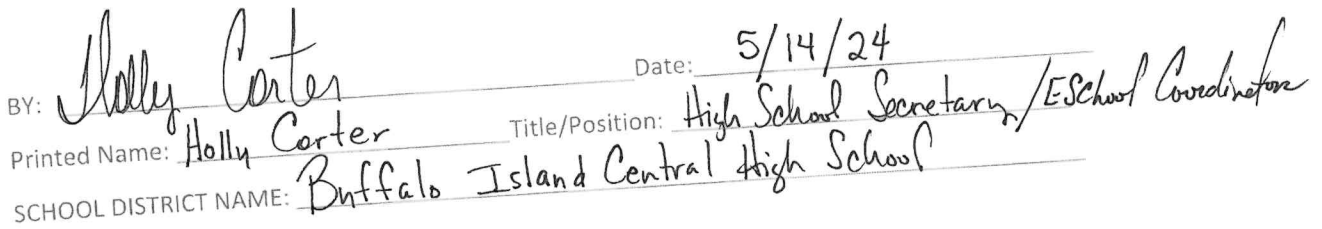 BY: Holly Carter Date: 5/14/24
Printed Name: Holly Carter Title/Position: High School Secretary/ESchool Coordinator
SCHOOL DISTRICT NAME: Buffalo Island Central High School